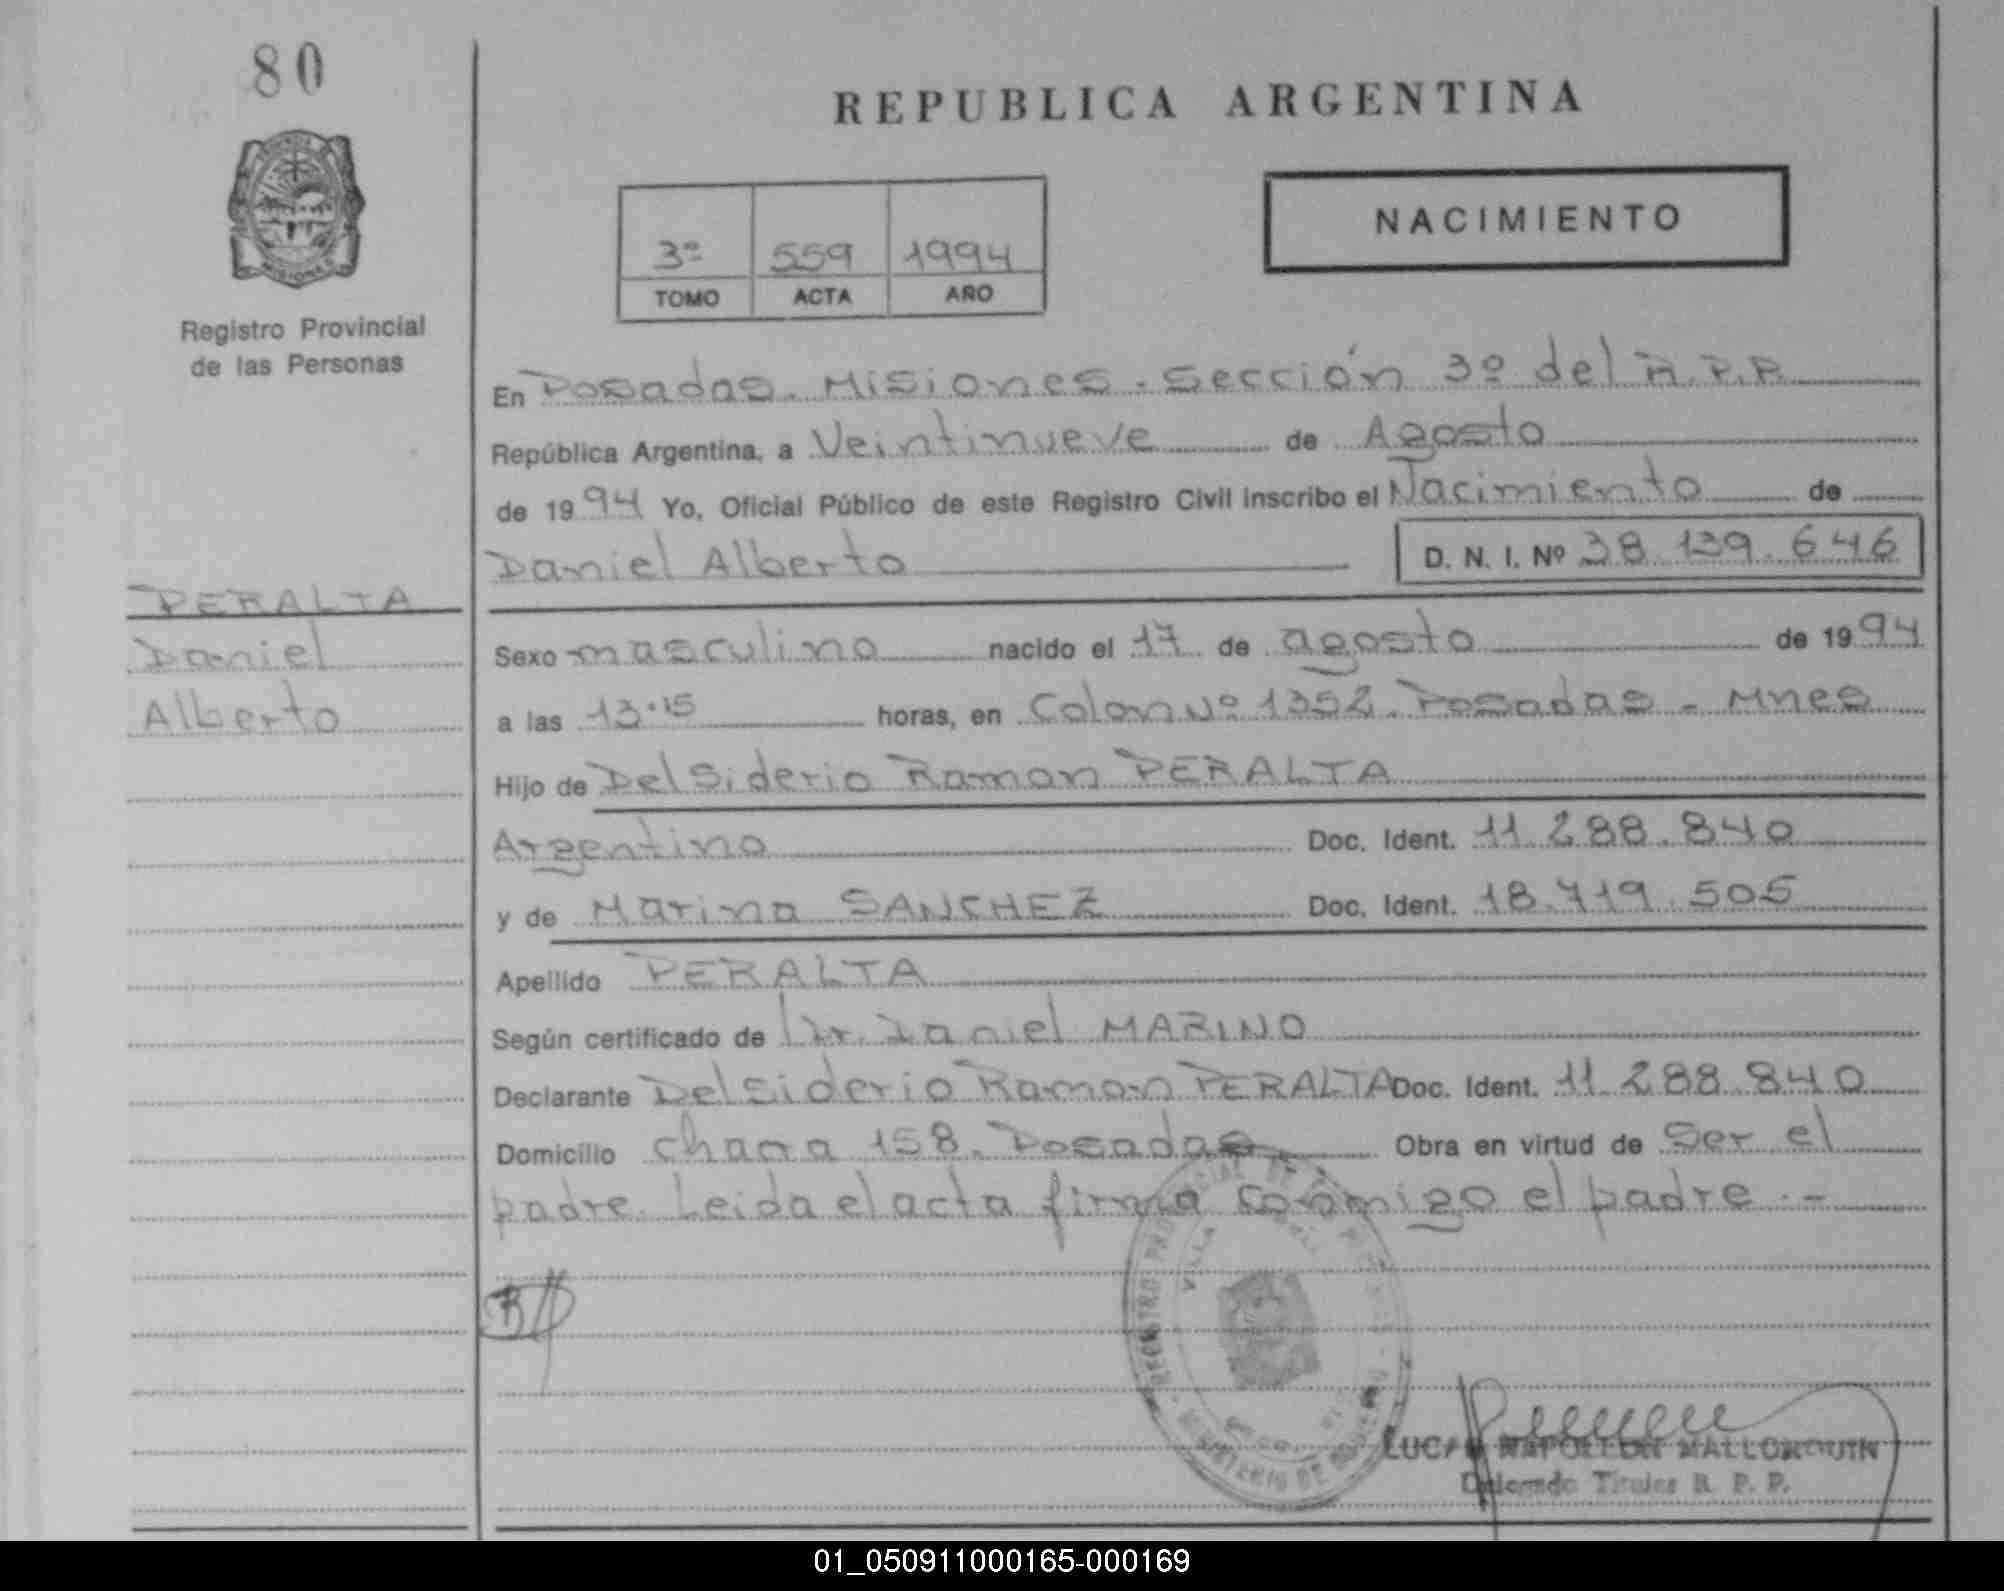 80
REPUBLICA ARGENTINA
MISIONES
Registro Provincial
de las Personas
3º 559 1994
TOMO ACTA AÑO
NACIMIENTO
En Posadas. Misiones. Sección 3º del R.P.P.
República Argentina, a Veintinueve de Agosto
de 1994 Yo, Oficial Público de este Registro Civil inscribo el Nacimiento de
Daniel Alberto D. N. I. Nº 38.139.646
PERALTA
Daniel
Alberto
Sexo masculino nacido el 17 de agosto de 1994
a las 13.15 horas, en Colon Nº 1352. Posadas - Mnes
Hijo de Delsiderio Ramon PERALTA
Argentino Doc. Ident. 11.288.840
y de Marina SANCHEZ Doc. Ident. 18.719.505
Apellido PERALTA
Según certificado de Dr. Daniel MARINO
Declarante Delsiderio Ramon PERALTA Doc. Ident. 11.288.840
Domicilio chacra 158. Posadas Obra en virtud de Ser el
padre. Leida el acta firma conmigo el padre.-
REGISTRO PROVINCIAL DE LAS PERSONAS - MINISTERIO DE GOBIERNO
VILLA
LUCAS NAPOLEON MALLORQUIN
Delegado Titular R. P. P.
01_050911000165-000169